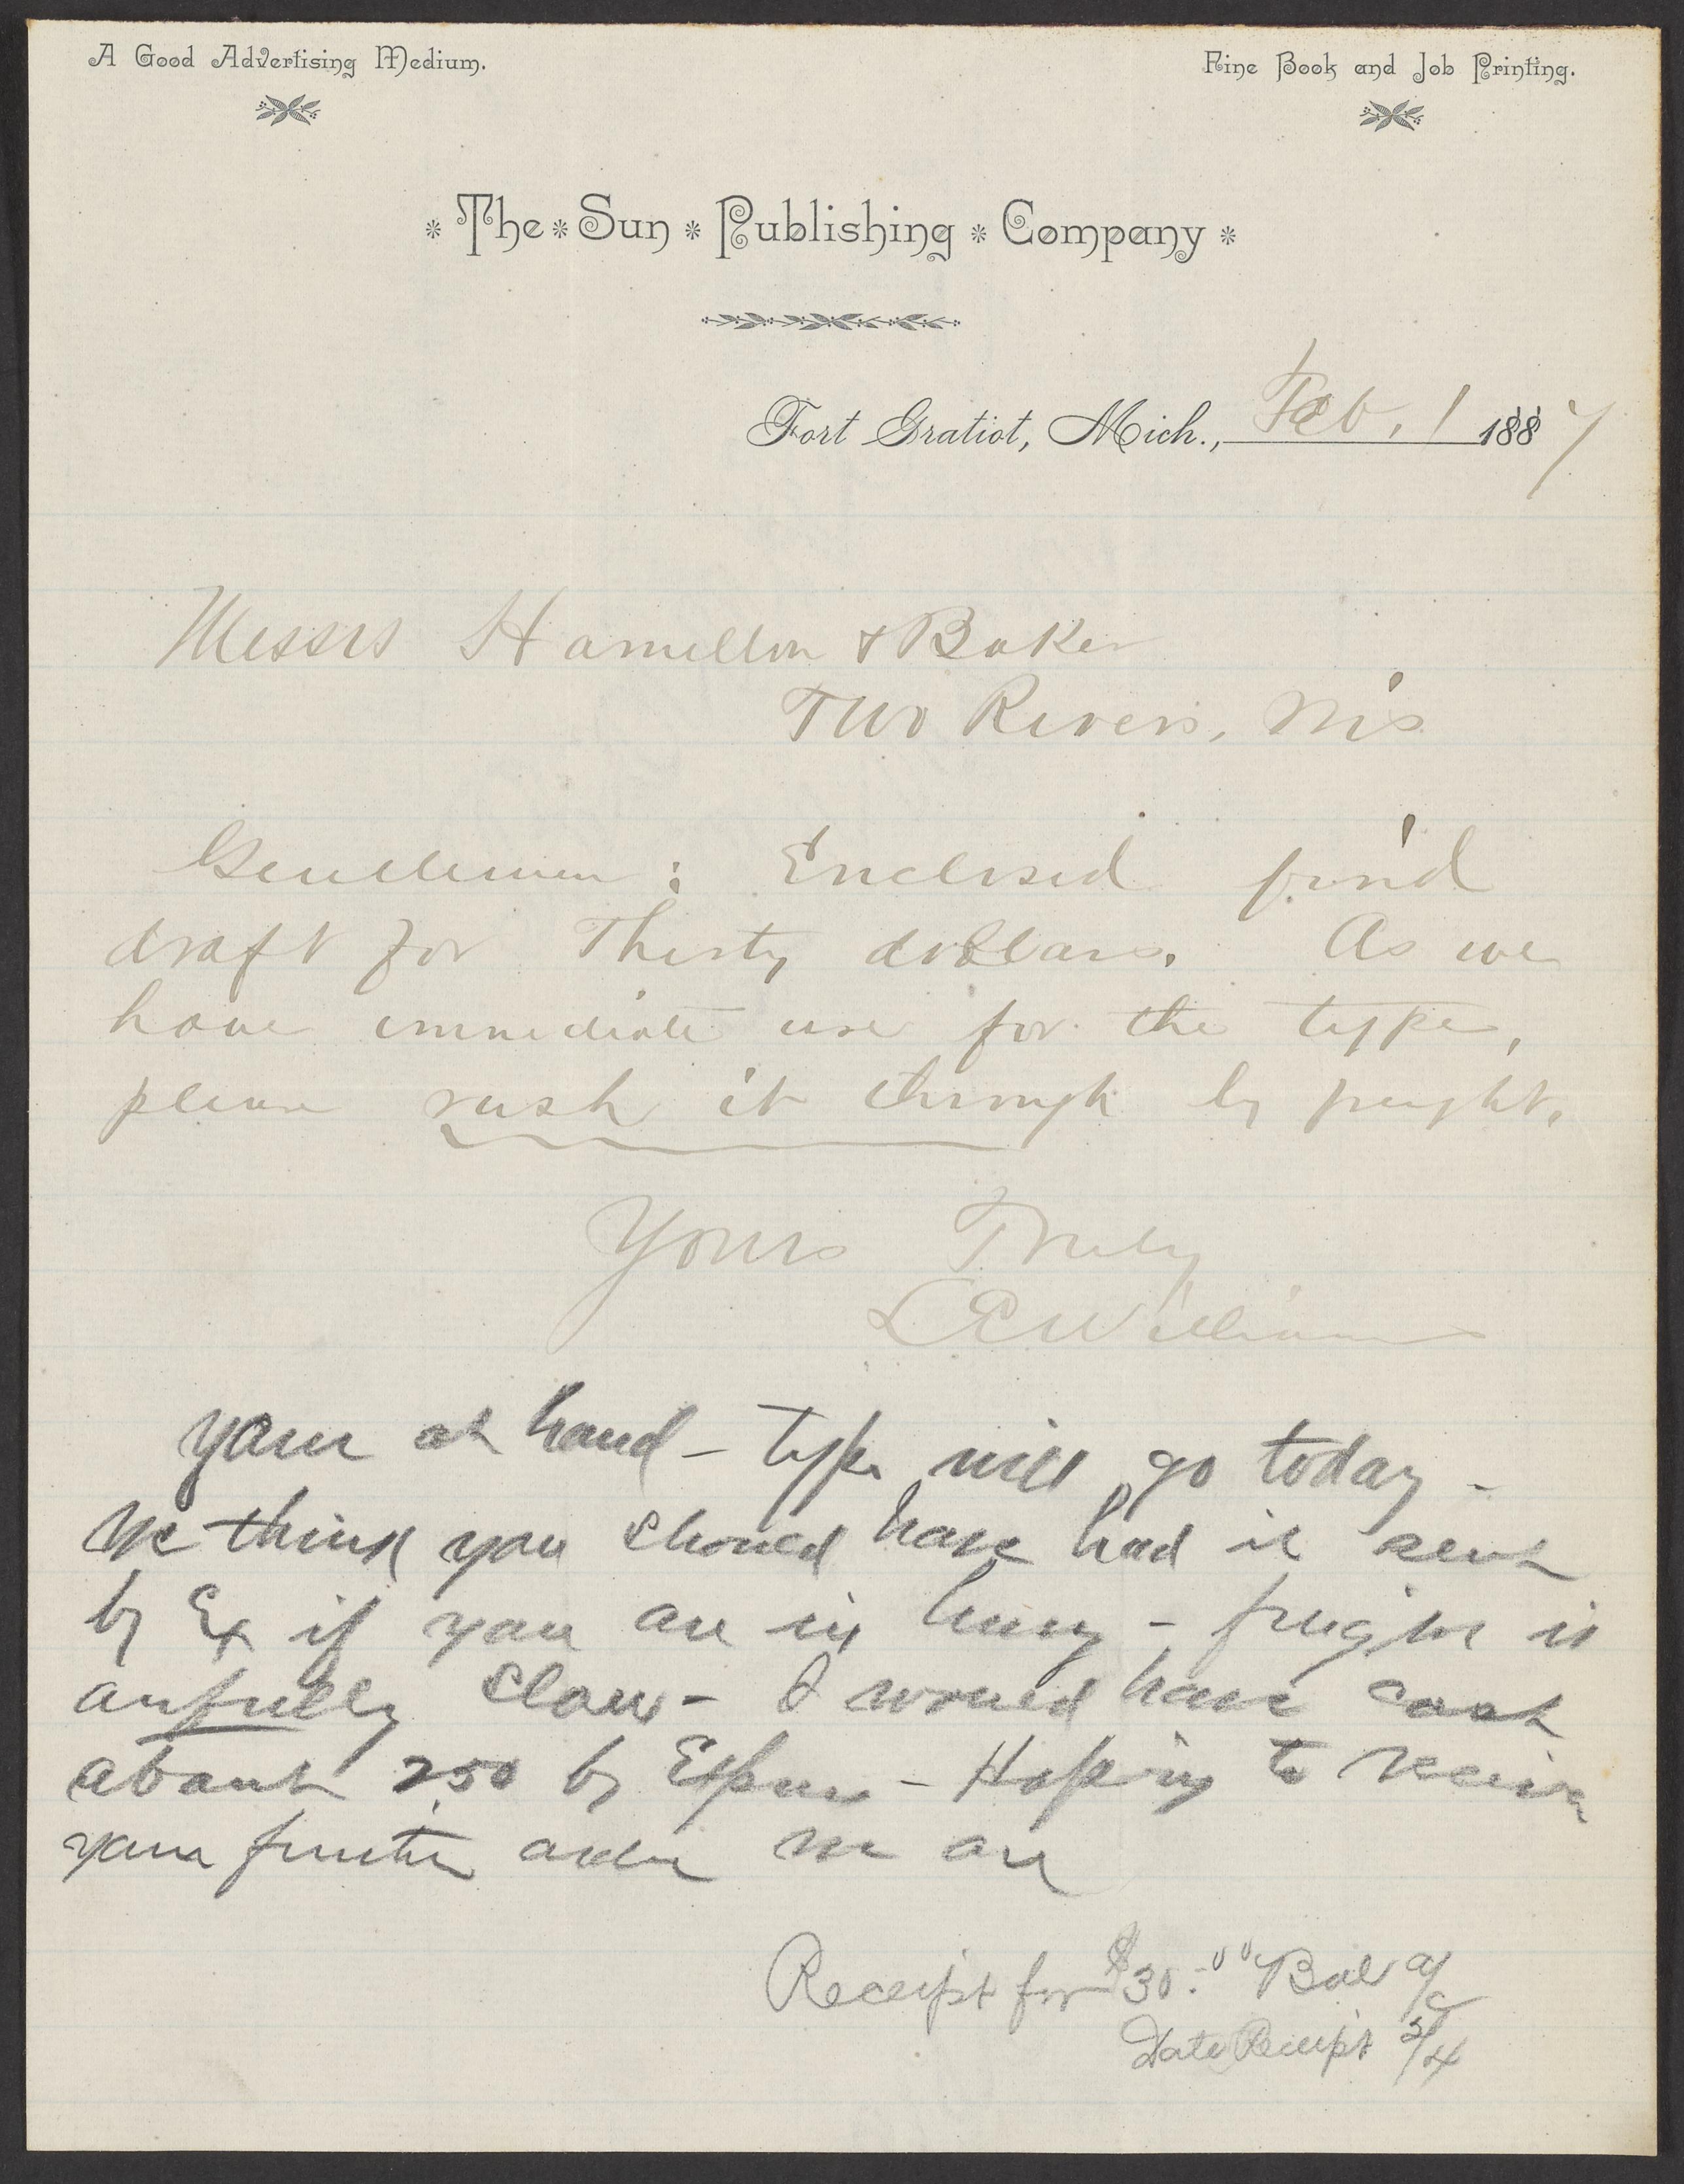 A Good Advertising Medium.
Fine Book and Job Printing.
The Sun Publishing Company
Fort Gratiot, Mich., Feb. 1 1887
Messrs Hamilton & Baker
Two Rivers, Wis
Gentlemen : Enclosed find
draft for Thirty dollars. As we
have immediate use for the type,
please rush it through by freight.
Yours Truly
L E Williams
Yours at hand - type will go today -
We think you should have had it sent
by Ex if you are in hurry - freight is
awfully slow - I would have cost
about 250 by Express - Hoping to receive
your further orders we are
Receipt for $30.00 Bal a/c
Date Receipt 2/4